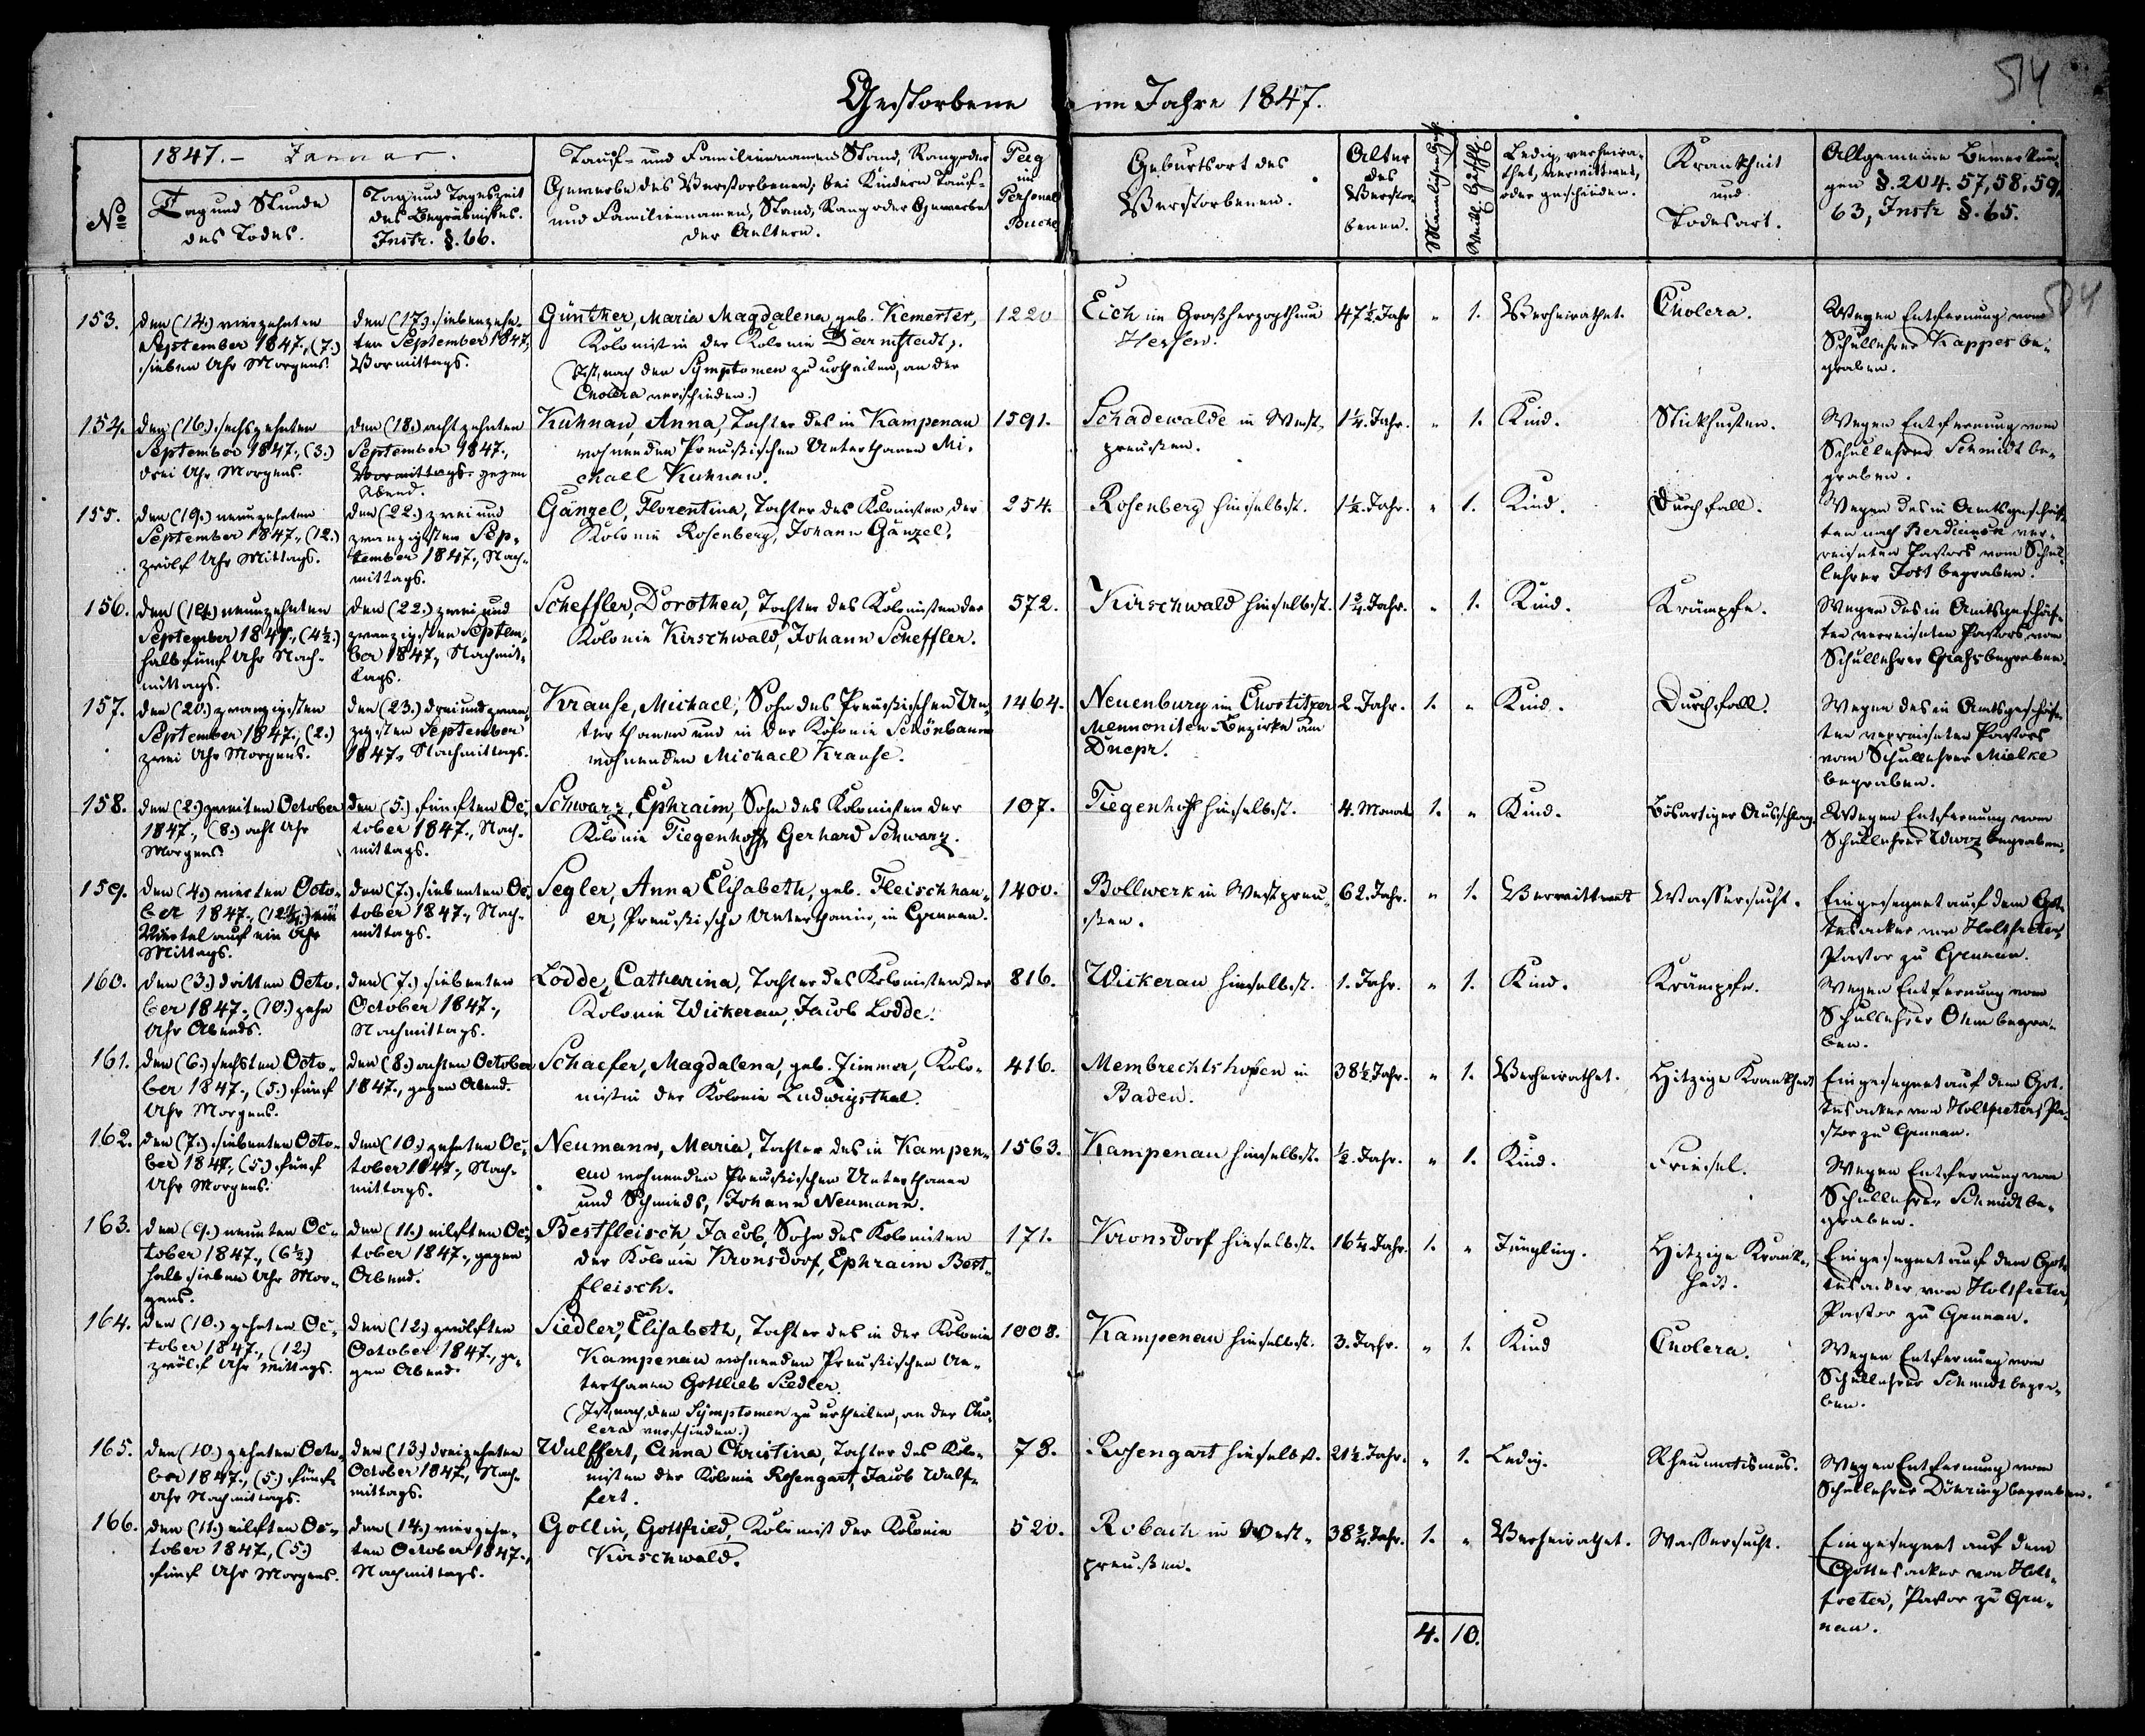 514
Gestorbene im Jahre 1847.
1847. – Januar.
No
Tag und Stunde
des Todes.
Tag und Tageszeit
des Begräbnißes.
Instr. §. 66.
Tauf- und Familiennamen, Stand, Rang oder
Gewerbe des Verstorbenen; bei Kindern Tauf-
und Familiennamen, Stand, Rang oder Gewerbe
der Aeltern.
Pag
im
Personal
Buche
Geburtsort des
Verstorbenen.
Alter
des
Verstor-
benen.
Männlichen Geschl.
Weibl. Geschl.
Ledig, verheira-
thet, verwittwet,
oder geschieden.
Krankheit
und
Todesart.
Allgemeine Bemerkun-
gen §. 204. 57, 58. 59,
63, Instr §. 65.
514
153.
den (14.) vierzehnten
September 1847., (7.)
sieben Uhr Morgens.
den (17.) siebenzehn-
ten September 1847,
Vormittags.
Günther, Maria Magdalena, geb. Kemerter,
Kolonistin der Kolonie Darmstadt.
(Ist, nach den Symptomen zu urtheilen, an der
Cholera verschieden.)
1220
Eich im Großherzogthum
Hessen.
47½. Jahr
"
1.
Verheirathet.
Cholera.
Wegen Entfernung vom
Schullehrer Kappes be-
graben.
154.
den (16.) sechszehnten
September 1847., (3.)
drei Uhr Morgens.
den (18.) achtzehnten
September 1847.,
Vormittags gegen
Abend.
Kuhnau, Anna, Tochter des in Kampenau
wohnenden Preußischen Unterthanen Mi-
chall Kuhnau.
1591.
Schadewalde in West-
preußen.
1¼. Jahr.
"
1.
Kind.
Stickhusten.
Wegen Entfernung vom
Schullehrer Schmidt be-
graben.
155.
den (19.) neunzehnten
September 1847., (12.)
zwölf Uhr Mittags.
den (22.) zwei und
zwanzigsten Sep-
tember 1847., Nach-
mittags.
Gänzel, Florentina, Tochter des Kolonisten der
Kolonie Rosenberg, Johann Gänzel.
254.
Rosenberg hieselbst.
1½. Jahr.
"
1.
Kind.
Durchfall.
Wegen des in Amtsgeschäf-
ten nach Berdiansk ver-
reiseten Pastors vom Schul-
lehrer Jost begraben.
156.
den (19.) neunzehnten
September 1847., (4½.)
halb fünf Uhr Nach-
mittags.
den (22.) zwei und
zwanzigsten Septem-
ber 1847., Nachmit-
tags.
Scheffler, Dorothea, Tochter des Kolonisten der
Kolonie Kirschwald, Johann Scheffler.
572.
Kirschwald hieselbst.
1¾. Jahr.
"
1.
Kind.
Krämpfe.
Wegen des in Amtsgeschäf-
ten verreiseten Pastors, vom
Schullehrer begraben.
157.
den (20.) zwanzigsten
September 1847., (2.)
zwei Uhr Morgens.
den (23.) drei und zwan-
zigsten September
1847., Nachmittags.
Krause, Michael, Sohn des Preußischen Un-
terthanen und in der Kolonie Schönbaum
wohnenden Michael Krause.
1464.
Neuenburg im Chortitzer
Mennoniten Bezirke am
Dnepr.
2. Jahr.
1.
"
Kind.
Durchfall.
Wegen des in Amtsgeschäf-
ten verreiseten Pastors
vom Schullehrer Mielke
begraben.
158.
den (2.) zweiten October
1847., (8.) acht Uhr
Morgens.
den (5.) fünften Oc-
tober 1847., Nach-
mittags.
Schwarz, Ephraim, Sohn des Kolonisten der
Kolonie Tiegenhoff, Gerhard Schwarz.
107.
Tiegenhoff hieselbst.
4. Monate
1.
"
Kind.
Bösartiger Ausschlag.
Wegen Entfernung vom
Schullehrer Wurz begraben.
159.
den (4.) vierten Octo-
ber 1847., (12¼.) ein
Viertel auf ein Uhr
Mittags.
den (7.) siebenten Oc-
tober 1847., Nach-
mittags.
Segler, Anna Elisabeth, geb. Fleischhau-
er, Preußische Unterthanin, in Grunau.
1400.
Bollwerk in Westpreu-
ßen.
62. Jahr.
"
1.
Verwittwet
Wassersucht.
Eingesegnet auf dem Got-
tesacker von Holtfreter,
Pastor zu Grunau.
160.
den (3.) dritten Octo-
ber 1847., (10.) zehn
Uhr Abends.
den (7.) siebenten
October 1847.,
Nachmittags.
Lodde, Catharina, Tochter des Kolonisten der
Kolonie Wickerau, Jacob Lodde.
816.
Wickerau hieselbst.
1. Jahr.
"
1.
Kind.
Krämpfe.
Wegen Entfernung vom
Schullehrer Ohm begra-
ben.
161.
den (6.) sechsten Octo-
ber 1847., (5.) fünf
Uhr Morgens.
den (8.) achten October
1847., gegen Abend.
Schaefer, Magdalena, geb. Zimmer, Kolo-
nistin der Kolonie Ludwigsthal.
416.
Membrechtshofen in
Baden.
38½. Jahr.
"
1.
Verheirathet.
Hitzige Krankheit
Eingesegnet auf dem Got-
tesacker von Holtfreter, Pa-
stor zu Grunau.
162.
den (7.) siebenten Octo-
ber 1847., (5.) fünf
Uhr Morgens.
den (10.) zehnten Oc-
tober 1847., Nach-
mittags.
Neumann, Maria, Tochter des in Kampen-
au wohnenden Preußischen Unterthanen
und Schmieds, Johann Neumann.
1563.
Kampenau hieselbst.
½. Jahr.
"
1.
Kind.
Friesel.
Wegen Entfernung vom
Schullehrer Schmidt be-
graben.
163.
den (9.) neunten Oc-
tober 1847., (6½.)
halb sieben Uhr Mor-
gens.
den (11.) eilften Oc-
tober 1847., gegen
Abend.
Bestfleisch, Jacob, Sohn des Kolonisten
der Kolonie Kronsdorf, Ephraim Best-
fleisch.
171.
Kronsdorf hieselbst.
16¼. Jahr.
1.
"
Jüngling.
Hitzige Krank-
heit.
Eingesegnet auf dem Got-
tesacker von Holtfreter,
Pastor zu Grunau.
164.
den (10.) zehnten Oc-
tober 1847., (12.)
zwölf Uhr Mittags.
den (12.) zwölften
October 1847., ge-
gen Abend.
Siedler, Elisabeth, Tochter des in der Kolonie
Kampenau wohnenden Preußischen Un-
terthanen Gottlieb Siedler.
(Ist, nach den Symptomen zu urtheilen, an der Cho-
lera verschieden.)
1008.
Kampenau hieselbst.
3. Jahr.
"
1.
Kind
Cholera.
Wegen Entfernung vom
Schullehrer Schmidt begra-
ben.
165.
den (10.) zehnten Octo-
ber 1847., (5.) fünf
Uhr Nachmittags.
den (13.) dreizehnten
October 1847., Nach-
mittags.
Wulffert, Anna Christina, Tochter des Kolo-
nisten der Kolonie Rosengart, Jacob Wulf-
fert.
78.
Rosengart hieselbst.
21½. Jahr.
"
1.
Ledig.
Rheumatismus.
Wegen Entfernung vom
Schullehrer Döhring begraben.
166.
den (11.) eilften Oc-
tober 1847., (5.)
fünf Uhr Morgens.
den (14.) vierzehn-
ten October 1847.,
Nachmittags.
Gollin, Gottfried, Kolonist der Kolonie
Kirschwald.
520.
Robach in West-
preußen.
38¾. Jahr.
1.
"
Verheirathet.
Wassersucht.
Eingesegnet auf dem
Gottesacker von Holt-
freter, Pastor zu Gru-
nau.
4.
10.